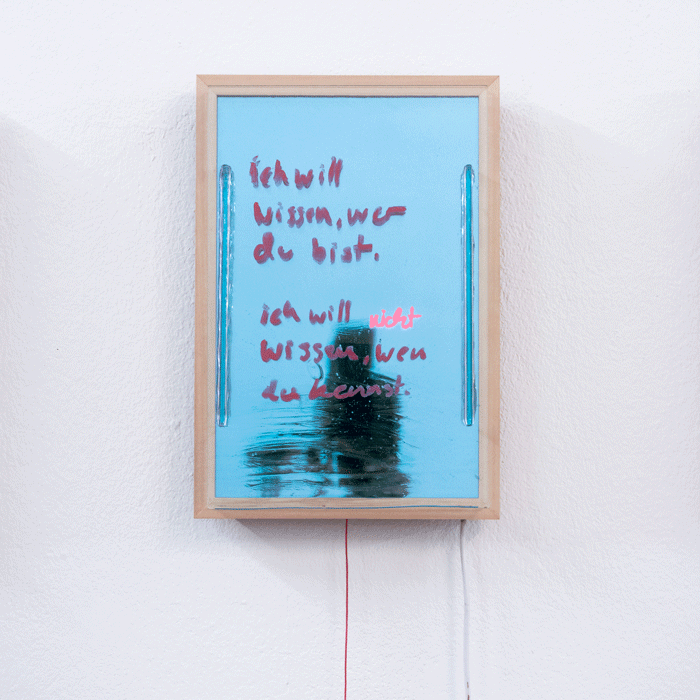 ich will
wissen, wer
du bist.
ich will nicht
wissen, wen
du kennst.